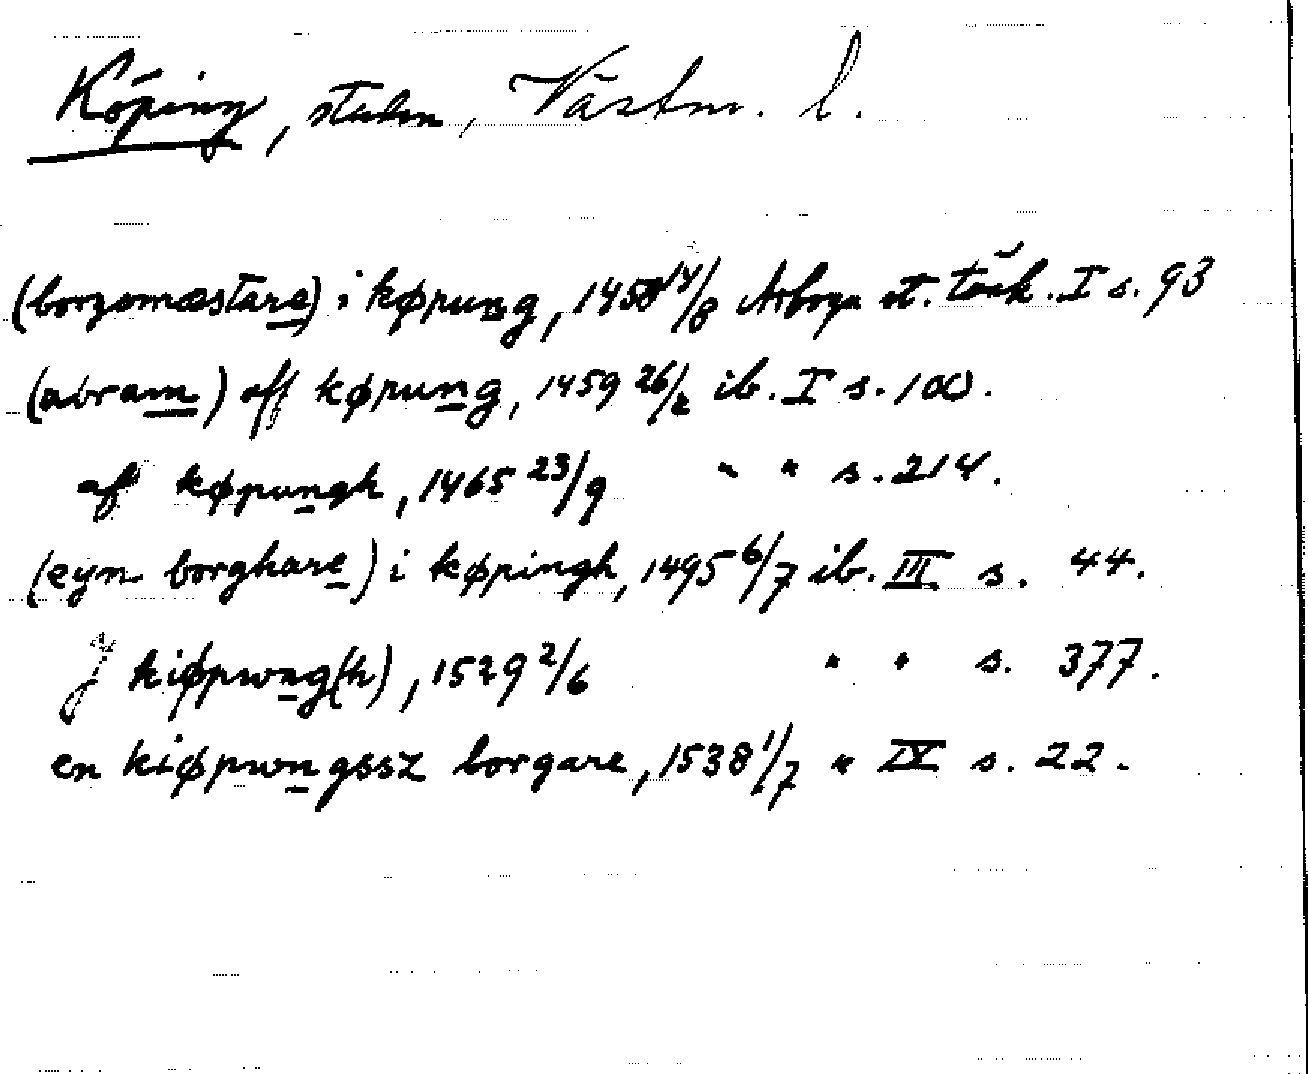 Köping, staden, Västm. l.
(borgomæstare) i køpung, 1458 14/8 Arboga st. tänk. I s. 93
(abram) aff køpung, 1459 26/2 ib. I s. 100.
af køpungh, 1465 23/9 " " s. 214.
(eyn borghare) i køpingh, 1495 6/7 ib. III s. 44.
J kiøpwng(h), 1529 2/6 " " s. 377.
en kiøpwngssz borgare, 1538 1/7 " IV s. 22.